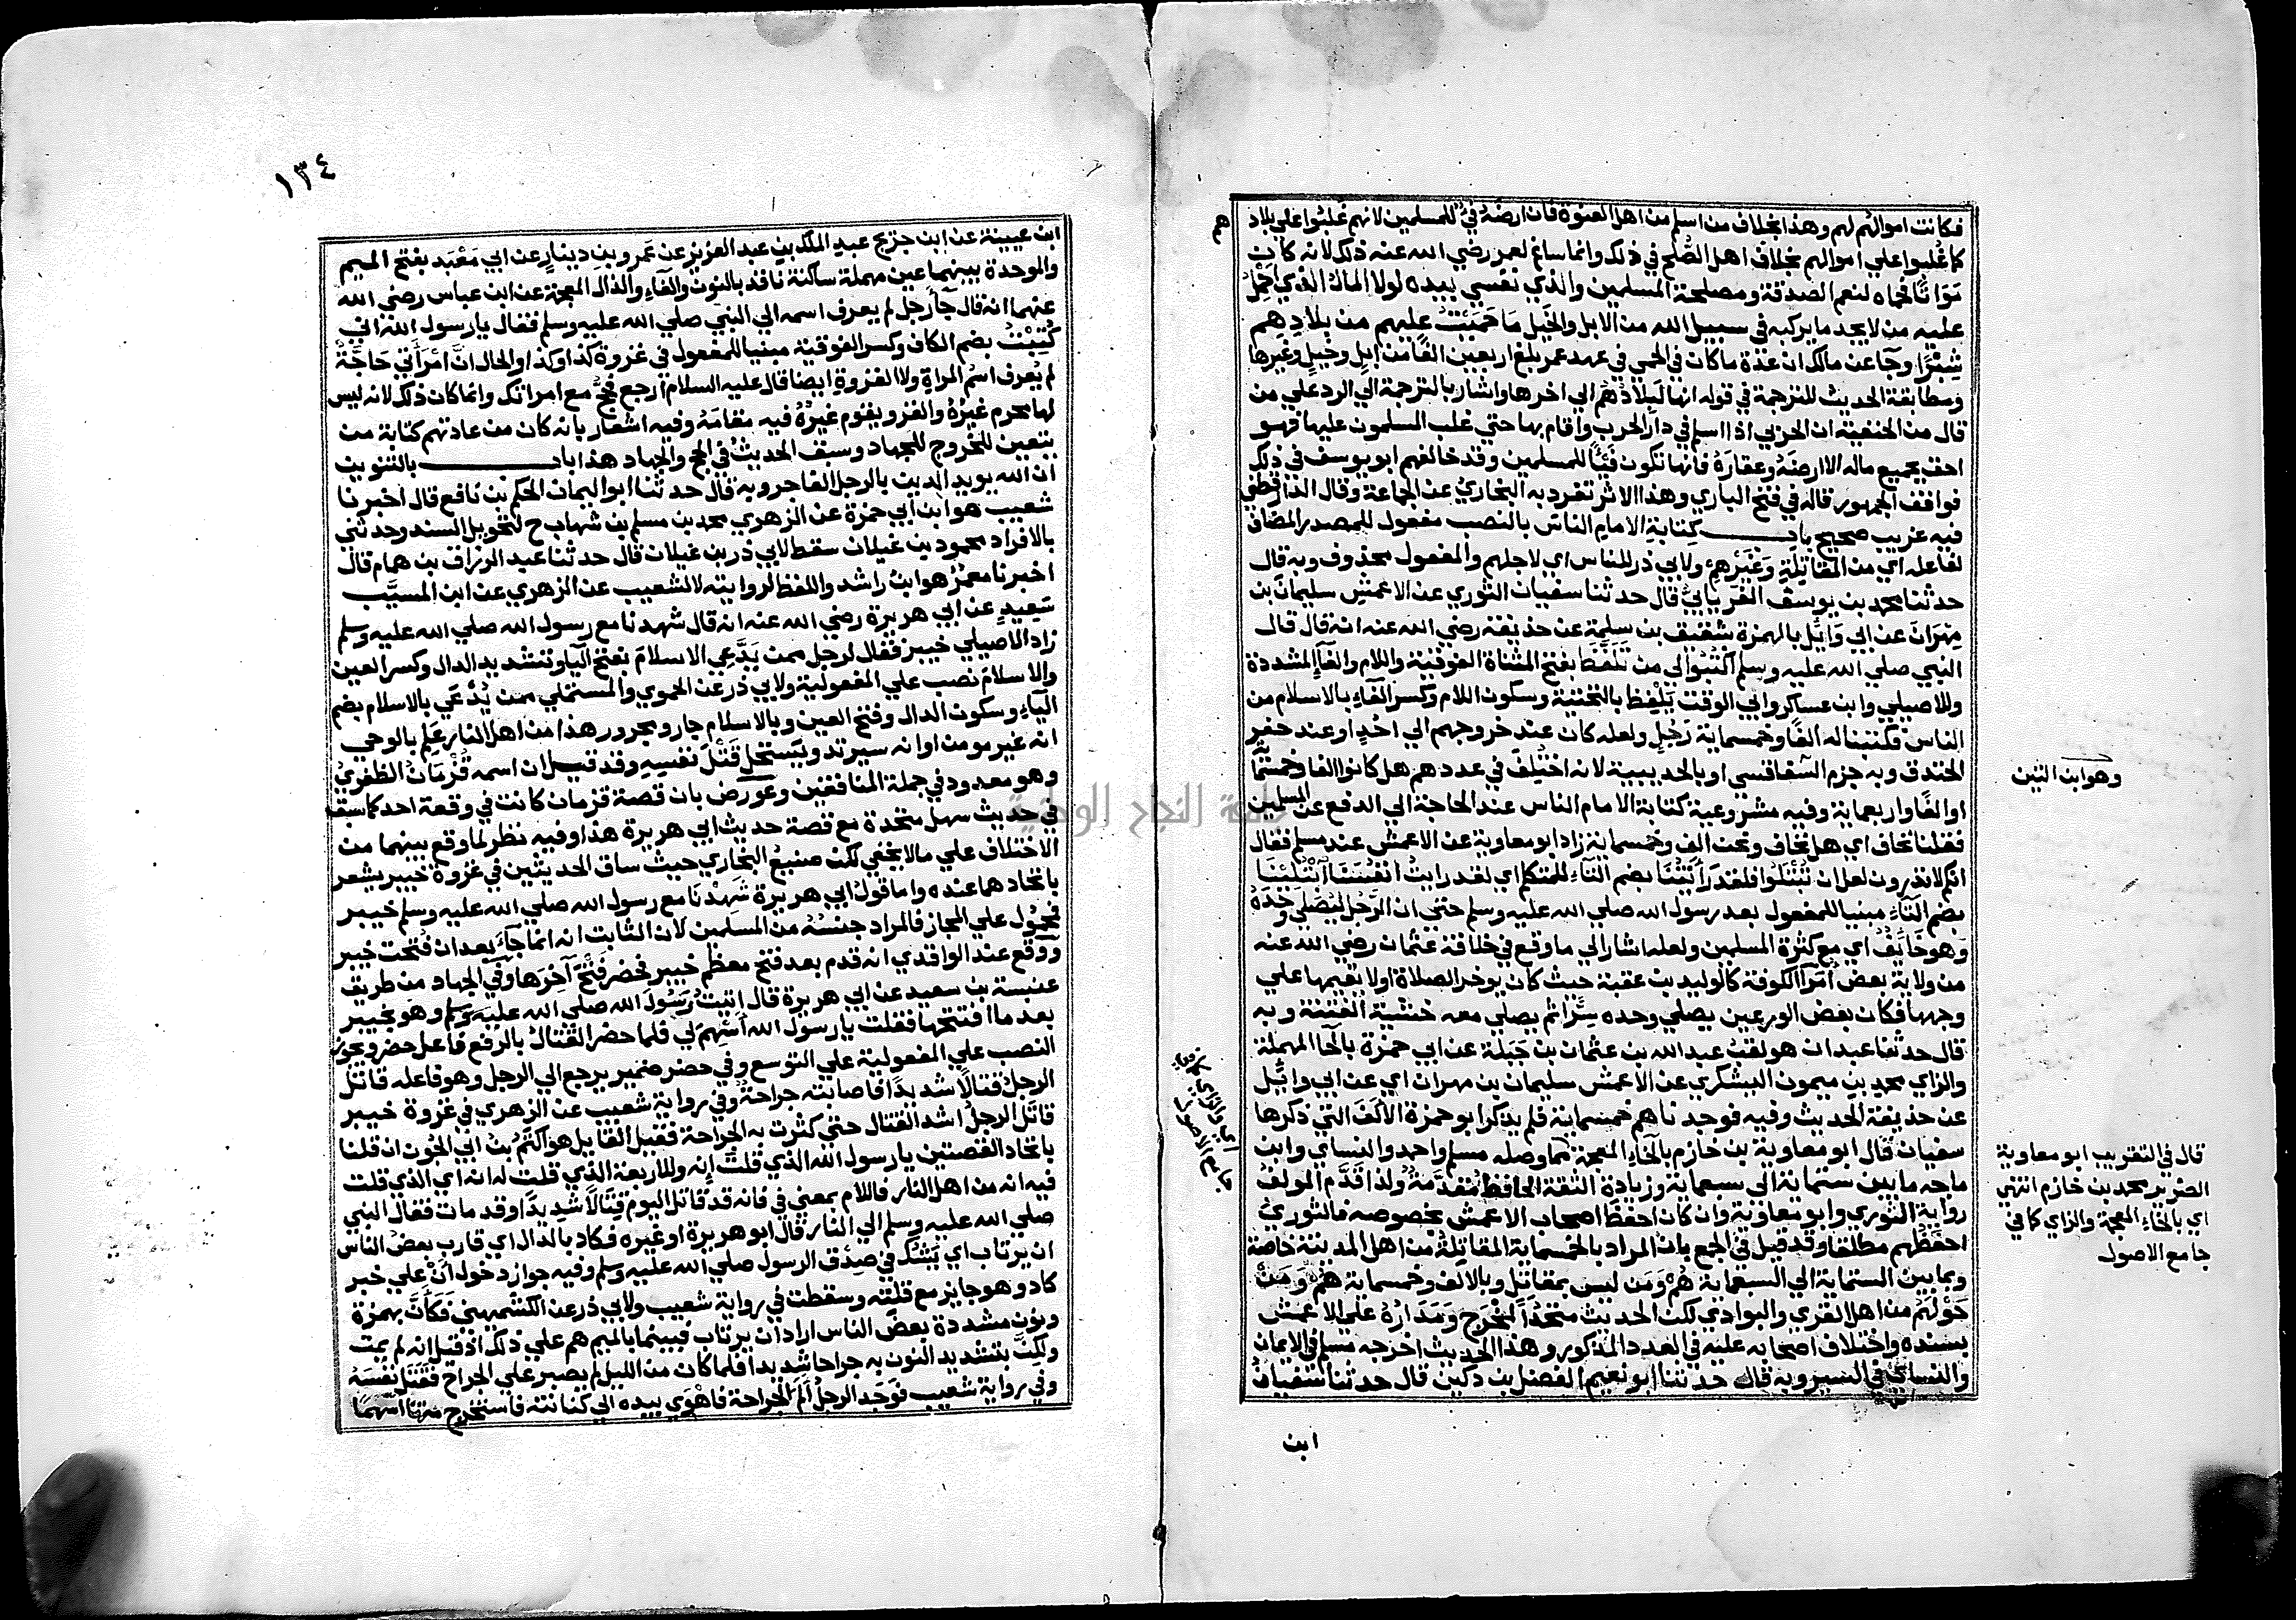 فكانت اموالهم لهم وهذا بخلاف من اسلم من اهل العنوة فان ارضه فئ للمسلمين لانهم غلبوا علي بلادهم
كما غلبوا علي اموالهم بخلاف اهل الصلح في ذلك وانما ساغ لعمر رضي الله عنه ذلك لانه كانت
مواتا فحماه لنعم الصدقة ومصلحة المسلمين والذي نفسي بيده لولا المال الذي احمل
عليه من لا يجد ما يركبه في سبيل الله من الابل والخيل ما حميت عليهم من بلادهم
شبرا وجا عن مالك ان عدة ما كان في الحمي في عهد عمر بلغ اربعين الفا من ابل وخيل وغيرها
ومطابقة الحديث للترجمة في قوله انها لبلادهم الي اخرها واشار بالترجمة الي الرد علي من
قال من الحنفية ان الحربي اذا اسلم في دار الحرب واقام بها حتي غلب المسلمون عليها فهو
احق بجميع ماله الا ارضه وعقاره فانها تكون فيئا للمسلمين وقد خالفهم ابو يوسف في ذلك
فوافق الجمهور قاله في فتح الباري وهذا الاثر تفرد به البخاري عن الجماعة وقال الدارقطني
فيه غريب صحيح باب كتابة الامام الناس بالنصب مفعول للمصدر المضاف
لفاعله اي من المقاتلة وغيرهم ولابي ذر للناس اي لاجلهم والمفعول محذوف وبه قال
حدثنا محمد بن يوسف الفريابي قال حدثنا سفيان الثوري عن الاعمش سليمان بن
مهران عن ابي وائل بالهمزة شقيق بن سلمة عن حذيفة رضي الله عنه انه قال قال
النبي صلي الله عليه وسلم اكتبوا لي من تلفظ بفتح المثناة الفوقية واللام والفاء المشددة
وللاصيلي وابن عساكر وابي الوقت يلفظ بالتحتية وسكون اللام وكسر الفاء بالاسلام من
الناس فكتبنا له الفا وخمسماية رجل ولعله كان عند خروجهم الي احد او عند حفر
الخندق وبه جزم السفاقسي او بالحديبية لانه اختلف في عددهم هل كانوا الفا وخمسماية
وهو ابن التين
او الفا واربعماية وفيه مشروعية كتابة الامام الناس عند الحاجة الي الدفع عن المسلمين
فقلنا نخاف اي هل نخاف ونحن الف وخمسماية زاد ابو معاوية عن الاعمش عند مسلم فقال
انكم لا تدرون لعل ان تبتلوا فلقد رايتنا بضم التاء للمتكلم اي لقد رايت انفسنا ابتلينا
بضم التاء مبنيا للمفعول بعد رسول الله صلي الله عليه وسلم حتي ان الرجل ليصلي وحده
وهو خائف اي مع كثرة المسلمين ولعله اشار الي ما وقع في خلافة عثمان رضي الله عنه
من ولاية بعض امرا الكوفة كالوليد بن عقبة حيث كان يوخر الصلاة اولا يقيمها علي
وجهها فكان بعض الورعين يصلي وحده سرا ثم يصلي معه خشية الفتنة وبه
قال حدثنا عبدان هو لقب عبد الله بن عثمان بن جبلة عن ابي حمزة بالحا المهملة
والزاي محمد بن ميمون اليشكري عن الاعمش سليمان بن مهران اي عن ابي وائل
عن حذيفة الحديث وفيه فوجدناهم خمسماية فلم يذكر ابو حمزة الالف التي ذكرها
سفيان قال ابو معاوية بن خازم بالخاء المعجمة مما وصله مسلم واحمد والنساي وابن
اي والزاي كما في
جامع الاصول
قال في التقريب ابو معاوية
الضرير محمد بن خازم انتهي
اي بالخاء المعجمة والزاي كما في
جامع الاصول
ماجه ما بين ستماية الي سبعماية وزيادة الثقة الحافظ مقدمة ولذا قدم المولف
رواية الثوري وابو معاوية وان كان احفظ اصحاب الاعمش بخصوصه فالثوري
احفظهم مطلقا وقد قيل في الجمع بان المراد بالخمسماية المقاتلة من اهل المدينة خاصة
وبما بين الستماية الي السبعماية هم ومن ليس بمقاتل وبالالف وخمسماية هم ومن
حولهم من اهل القري والبوادي لكن الحديث متحد المخرج ومداره علي الاعمش
بسنده واختلاف اصحابه عليه في العدد المذكور وهذا الحديث اخرجه مسلم في الايمان
والنساي في السير وبه قال حدثنا ابو نعيم الفضل بن دكين قال حدثنا سفيان
ابن
١٣٤
ابن عيينة عن ابن جريج عبد الملك بن عبد العزيز عن عمرو بن دينار عن ابي معبد بفتح الميم
والموحدة بينهما عين مهملة ساكنة نافذ بالنون والفاء والذال المعجمة عن ابن عباس رضي الله
عنهما انه قال جا رجل لم يعرف اسمه الي النبي صلي الله عليه وسلم فقال يا رسول الله اني
كتبت بضم الكاف وكسر الفوقية مبنيا للمفعول في غزوة كذا وكذا والحال ان امراتي حاجة
لم يعرف اسم المراة ولا الغزوة ايضا قال عليه السلام ارجع فحج مع امراتك وانما كان ذلك لانه ليس
لها محرم غيره والغزو يقوم غيره فيه مقامه وفيه اشعار بانه كان من عادتهم كتابة من
يتعين للخروج للجهاد وسبق الحديث في الحج والجهاد هذا باب بالتنوين
ان الله يويد الدين بالرجل الفاجر وبه قال حدثنا ابو اليمان الحكم بن نافع قال اخبرنا
شعيب هو ابن ابي حمزة عن الزهري محمد بن مسلم بن شهاب ح لتحويل السند وحدثني
بالافراد محمود بن غيلان سقط لابي ذر بن غيلان قال حدثنا عبد الرزاق بن همام قال
اخبرنا معمر هو ابن راشد واللفظ لروايته لا لشعيب عن الزهري عن ابن المسيب
سعيد عن ابي هريرة رضي الله عنه انه قال شهدنا مع رسول الله صلي الله عليه وسلم
زاد الاصيلي خيبر فقال لرجل ممن يدعي الاسلام بفتح اليا وتشديد الدال وكسر العين
والاسلام نصب علي المفعولية ولابي ذر عن الحموي والمستملي ممن يدعي بالاسلام بضم
الياء وسكون الدال وفتح العين وبالاسلام جار ومجرور هذا من اهل النار علم بالوحي
انه غير مومن او انه سيرتد ويستحل قتل نفسه وقد قيل ان اسمه قزمان الظفري
وهو معدود في جملة المنافقين وعورض بان قصة قزمان كانت في وقعة احد كما سبق
في حديث سهل متحدة مع قصة حديث ابي هريرة هذا وفيه نظر لما وقع بينهما من
الاختلاف علي ما لا يخفي لكن صنيع البخاري حيث ساق الحديثين في غزوة خيبر يشعر
باتحادهما عنده واما قول ابي هريرة شهدنا مع رسول الله صلي الله عليه وسلم خيبر
فمحمول علي المجاز فالمراد جنسه من المسلمين لان الثابت انه انما جاء بعد ان فتحت خيبر
ووقع عند الواقدي انه قدم بعد فتح معظم خيبر فحضر فتح اخرها وفي الجهاد من طريق
عنبسة بن سعيد عن ابي هريرة قال اتيت رسول الله صلي الله عليه وسلم وهو بخيبر
بعد ما افتتحها فقلت يا رسول الله اسهم لي فلما حضر القتال بالرفع فاعل حضر ويجوز
النصب علي المفعولية علي التوسع وفي حضر ضمير يرجع الي الرجل وهو فاعله قاتل
الرجل قتالا شديدا فاصابته جراحة وفي رواية شعيب عن الزهري في غزوة خيبر
قاتل الرجل اشد القتال حتي كثرت به الجراحة فقيل القايل هو اكثم بن ابي الجون ان قلنا
باتحاد القصتين يا رسول الله الذي قلت انه وللاربعة الذي قلت له انه اي الذي قلت
فيه انه من اهل النار فاللام بمعني في فانه قد قاتل اليوم قتالا شديدا وقد مات فقال النبي
صلي الله عليه وسلم الي النار قال ابو هريرة او غيره فكاد بالدال اي قارب بعض الناس
ان يرتاب اي يشك في صدق الرسول صلي الله عليه وسلم وفيه جواز دخول ان علي خبر
كاد وهو جايز مع قلته وسقطت في رواية شعيب ولابي ذر عن الكشميهني فكان بهمزة
ونون مشددة بعض الناس اراد ان يرتاب فبينما بالميم هم علي ذلك اذ قيل انه لم يمت
ولكن بتشديد النون به جراحا شديدا فلما كان من الليل لم يصبر علي الجراح فقتل نفسه
وفي رواية شعيب فوجد الرجل الم الجراحة فاهوي بيده الي كنانته فاستخرج منها اسهما